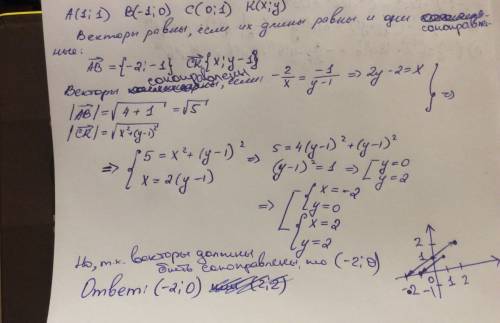 A(1;1) B(-1;0) C(0;1) K(x;y)
Векторы равны, если их длины равны и они сонаправлен-
ные:
AB = {-2;-1} CK{x; y-1}
Векторы сонаправлены, если: -2/x = -1/(y-1) => 2y-2=x } =>
|AB| = √(4+1) = √5
|CK| = √(x²+(y-1)²)
=> { 5 = x² + (y-1)² => 5 = 4(y-1)² + (y-1)²
x = 2(y-1) (y-1)² = 1 => [ y=0
y=2
=> [ { x=-2
y=0
{ x=2
y=2
Но, т.к. векторы должны
быть сонаправлены, то (-2;0)
Ответ: (-2;0)
2
1
-2 -1 0 1 2